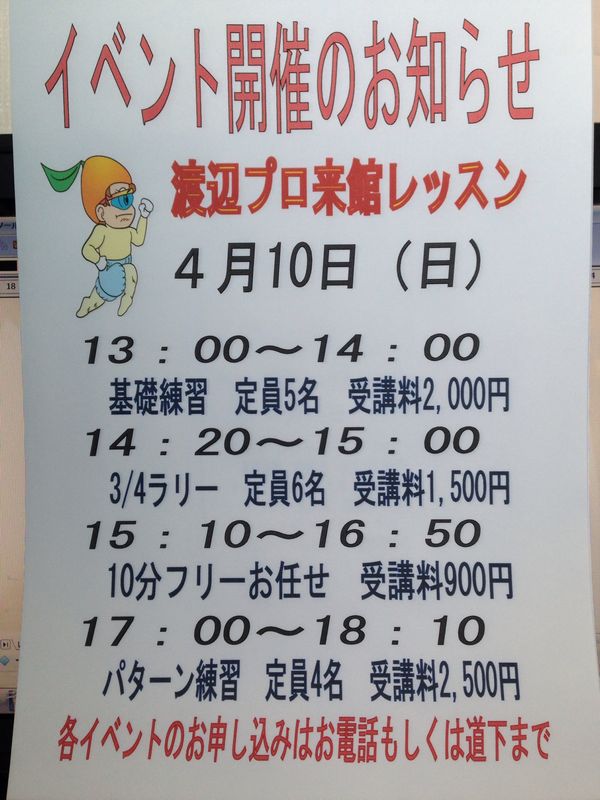 イベント開催のお知らせ
渡辺プロ来館レッスン
4月10日（日）
13：00～14：00
基礎練習　定員5名　受講料2,000円
14：20～15：00
3/4ラリー　定員6名　受講料1,500円
15：10～16：50
10分フリーお任せ　受講料900円
17：00～18：10
パターン練習　定員4名　受講料2,500円
各イベントのお申し込みはお電話もしくは道下まで